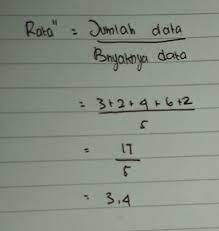 Rata" = Jumlah data
Bnyaknya data
= 3+2+4+6+2
5
= 17
5
= 3,4